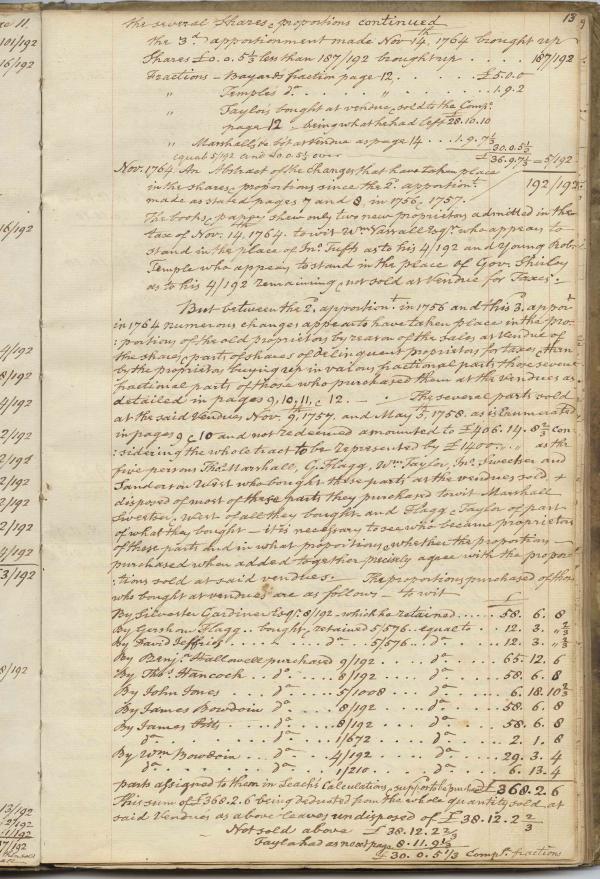 11.
101/192
16/192
16/192
4/192
8/192
4/192
2/192
2/192
2/192
2/192
2/192
4/192
3/192
8/192
13/192
2/192
1/192
7/192
13
the several Shares & proportions continued
the 3d. apportionment made Nov 14th. 1764 brought up
Shares £0.0.5⅓ less than 187/192 brought up . . . . 187/192
Fractions – Bayards fraction page 12. . . . . . . £5.0.0
" Temple's do. . . . . " . . . 1.9.2
" Taylor's bought at vendue & sold to the Compy.
page 12 – being what he had left 28.10.10
" Marshall, he bot at Vendue as page 14 . . . 1.9.7⅓
30.0.5⅓
equal 5/192 and £0.0.5⅓ over £36.9.7⅓ = 5/192
192/192
Nov. 1764. An Abstract of the Changes that have taken place
in the shares & proportions since the 2d. apportiont.
made as stated pages 7 and 8, in 1756, 1757.
The books & papers shew only two new proprietors admitted in the
tax of Nov. 14th. 1764. to wit Wm. Vassall Esqr. who appears to
stand in the place of Jno. Tufts as to his 4/192 and Young Robt.
Temple who appears to stand in the place of Gov. Shirley
as to his 4/192 remaining & not sold at Vendue for Taxes. –
But between the 2d. apportiont. in 1756 and this 3d. apport.
in 1764 numerous changes appear to have taken place in the pro:
:portions of the old proprietors by reason of the sales at Vendue of
the shares & parts of shares of delinquent proprietors for taxes, & then
by the proprietors buying up in various fractional parts those several
fractional parts of those who purchased them at the vendues as
detailed in pages 9, 10, 11, & 12. – . The several parts sold
at the said Vendues Nov. 9th, 1757. and May 3d, 1758. as is enumerated
in pages 9 & 10 and not redeemed amounted to £406.14.8⅔ con:
:sidering the whole tract to be represented by £1400. . , as the
five persons Thos. Marshall, G. Flagg, Wm. Taylor, Jno. Sweetser and
Sanderson West who bought those parts at the vendues sold &
disposed of most of these parts they purchased to wit Marshall
Sweetser, & West of all they bought, and Flagg & Taylor of part
of what they bought – it is necessary to see who became proprietors
of these parts and in what proportions, & whether the proportions
purchased when added together precisely agree with the propor:
:tions sold at said vendues. – The proportions purchased of those
who bought at vendues are as follows – to wit £
By Silvester Gardiner Esqr. 8/192 – which he retained . . . . 58. 6. 8
By Gershom Flagg . . bought, & retained 5/576 . . equal to . . 12. 3. " ⅔
By David Jeffries . . . . . . . do . . . 5/576 . . do. . . . 12. 3. " ⅔
By Benja. Hallowell purchased 9/192 . . . . do. . . . 65. 12. 6
By Thos. Hancock . . do . . . 8/192 . . . . do. . . . 58. 6. 8
By John Jones . . . do . . . 5/1008 . . . . do. . . . 6. 18. 10⅔
By James Bowdoin do . . . 8/192 . . . . do. . . . 58. 6. 8
By James Pitts . . . do . . . 8/192 . . . . do. . . . 58. 6. 8
do . . . . . do . . . 1/672 . . . . do. . . . 2. 1. 8
By Wm. Bowdoin . . do . . . 4/192 . . . . do. . . . 29. 3. 4
do . . . . . do . . . 1/210 . . . . do. . . . 6. 13. 4
parts assigned to them in Leach's Calculations, £368.2.6
This sum of £368.2.6 being deducted from the whole quantity sold at
said Vendues as above leaves undisposed of £38.12.2⅔
Not sold above £38.12.2⅔
Taylor had as next page 8.11.9⅓
£30.0.5⅓ Compy. fraction